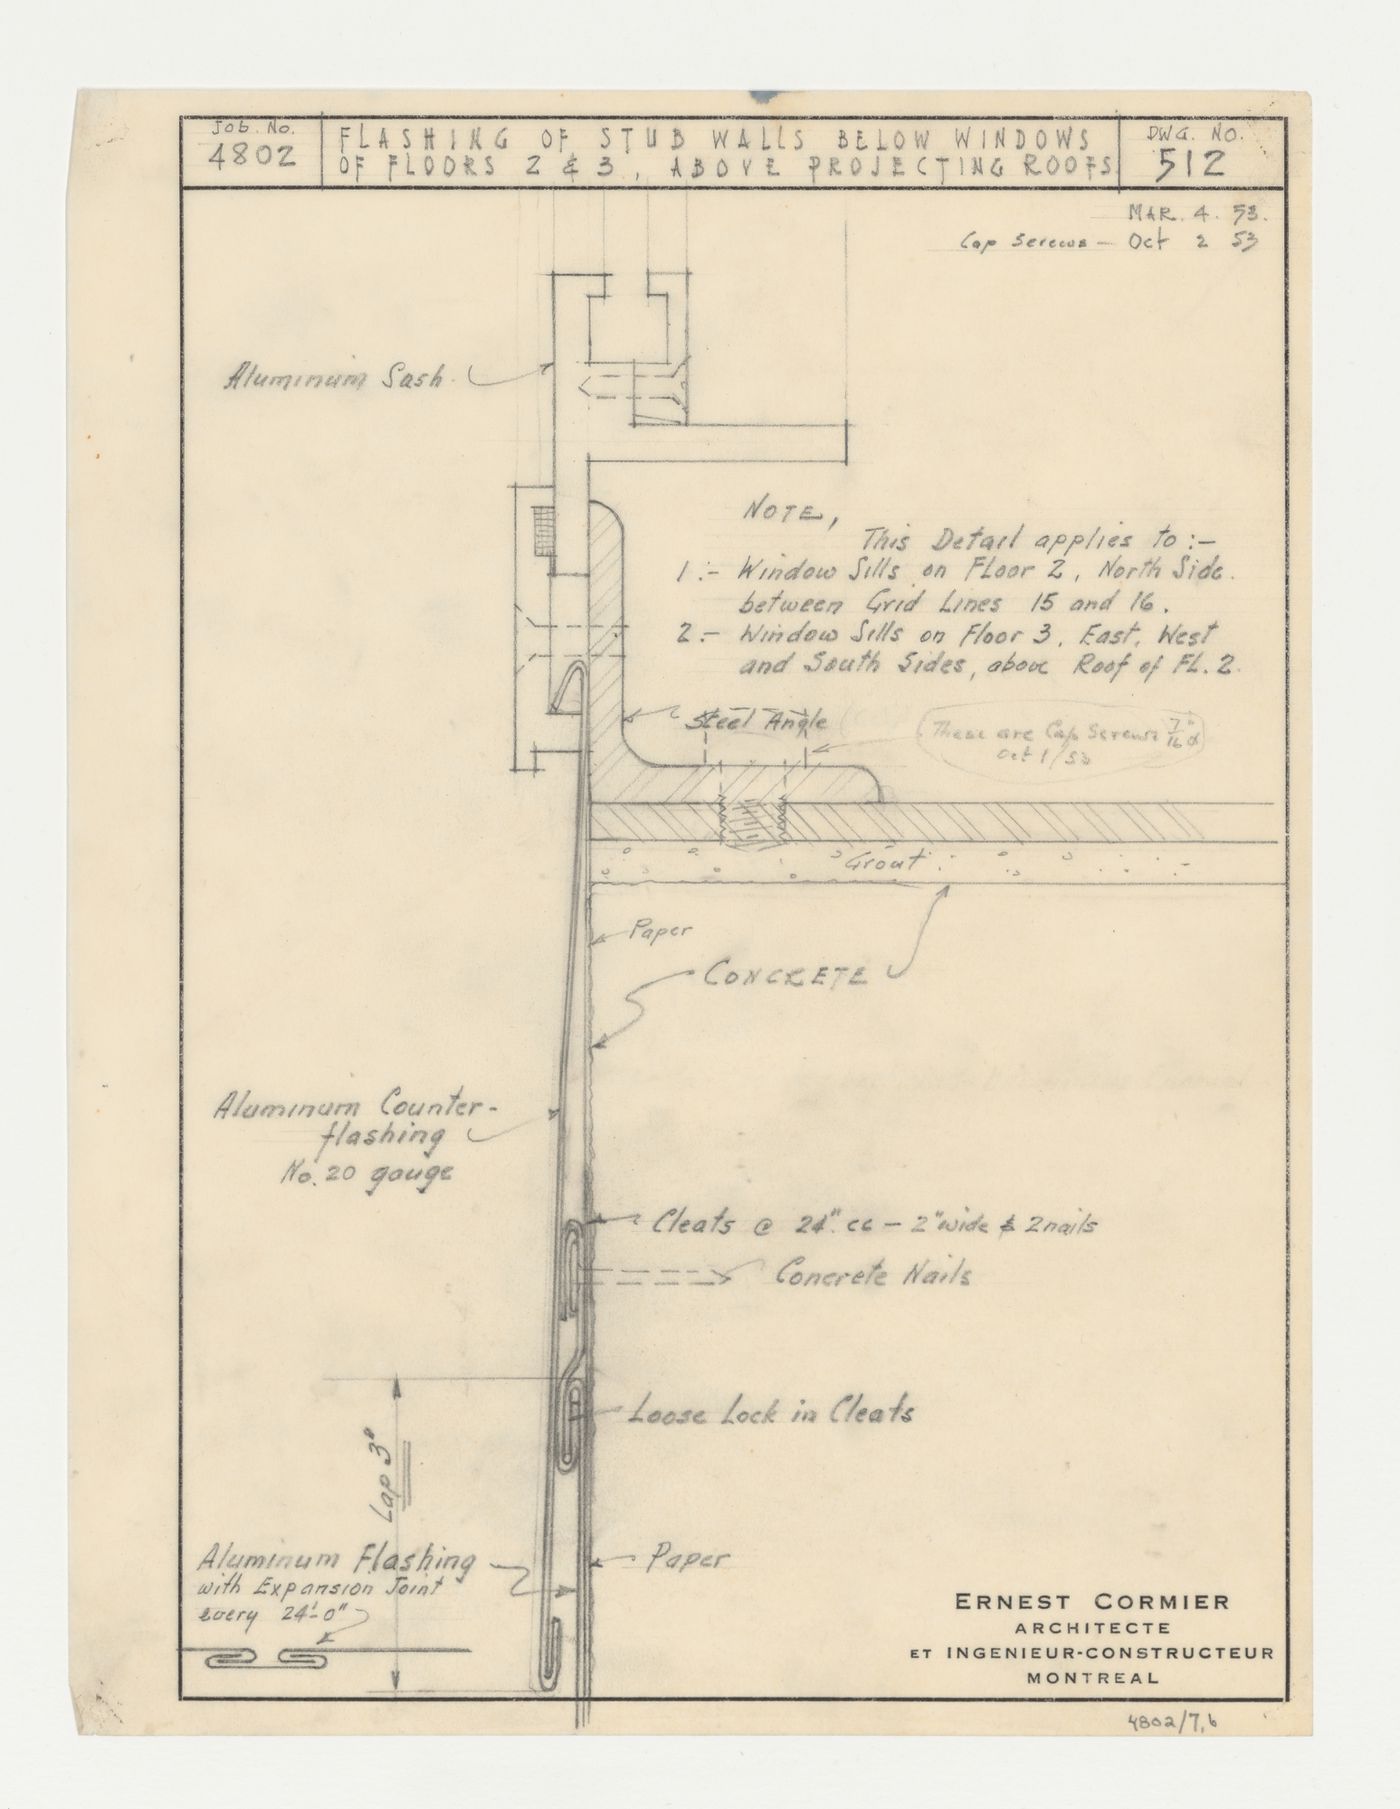 Job. No.
4802
FLASHING OF STUB WALLS BELOW WINDOWS
OF FLOORS 2 & 3, ABOVE PROJECTING ROOFS
DWG. NO.
512
MAR. 4. 53.
Cap Screws – Oct 2 53
Aluminum Sash.
NOTE,
This Detail applies to :-
1 :- Window Sills on Floor 2, North Side.
between Grid Lines 15 and 16.
2 :- Window Sills on Floor 3, East, West
and South Sides, above Roof of FL. 2.
Steel Angle
These are Cap Screws 7/16" ø
Oct 1/53
Grout
Paper
CONCRETE
Aluminum Counter-
flashing
No. 20 gauge
Cleats @ 24" cc – 2" wide & 2 nails
Concrete Nails
Loose Lock in Cleats
Lap 3"
Aluminum Flashing
with Expansion Joint
every 24'-0"
Paper
ERNEST CORMIER
ARCHITECTE
ET INGENIEUR-CONSTRUCTEUR
MONTREAL
4802/7,b